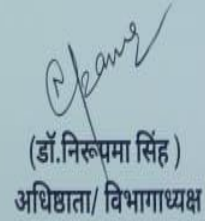 (डॉ.निरूपमा सिंह )
अधिष्ठाता/ विभागाध्यक्ष